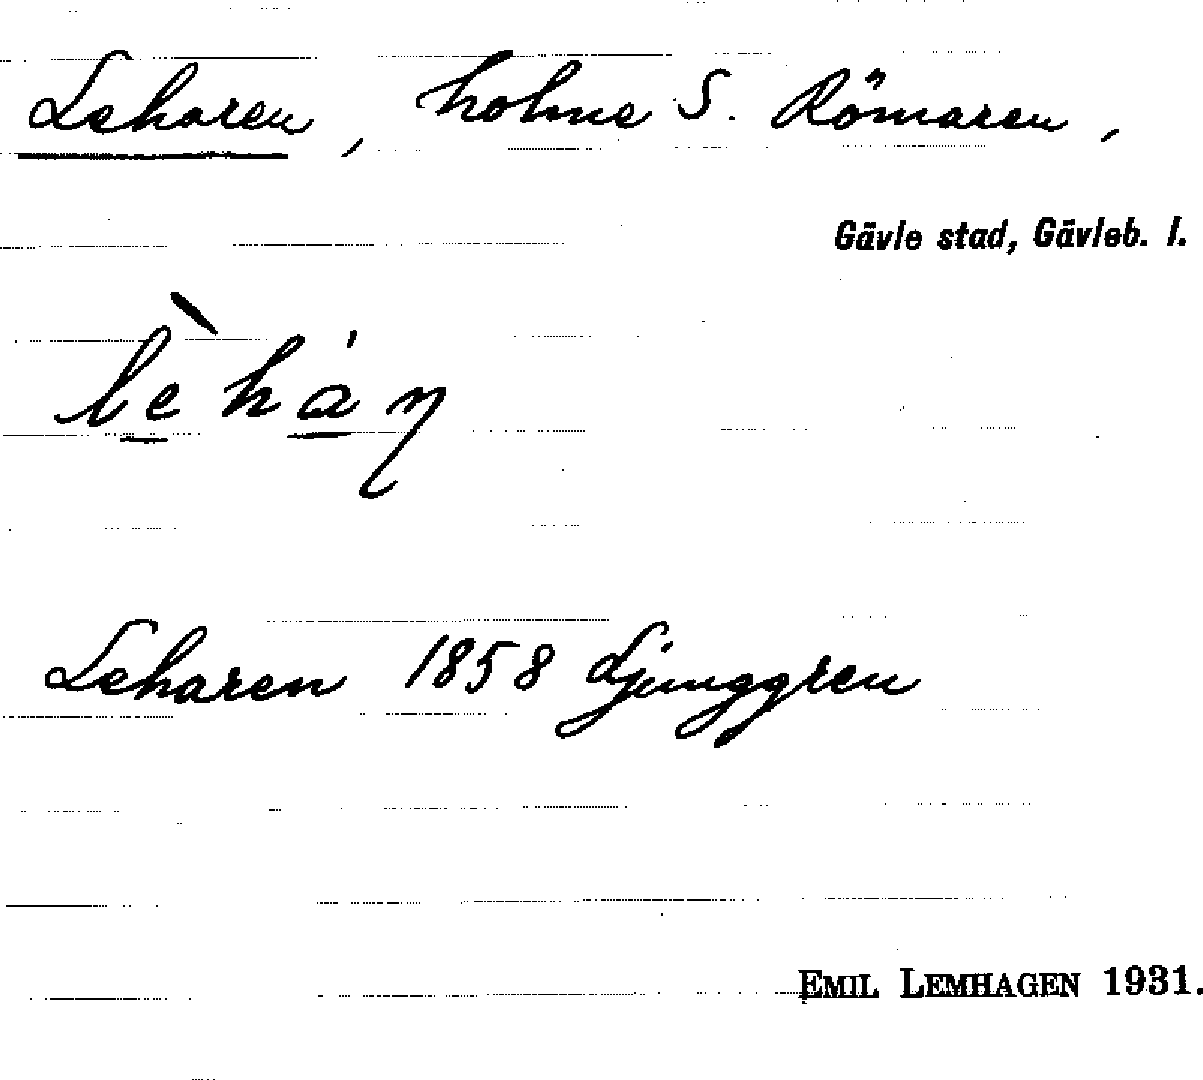 Leharen, holme S. Römaren,
Gävle stad, Gävleb. l.
lèháŋ
Leharen 1858 Ljunggren
EMIL LEMHAGEN 1931.